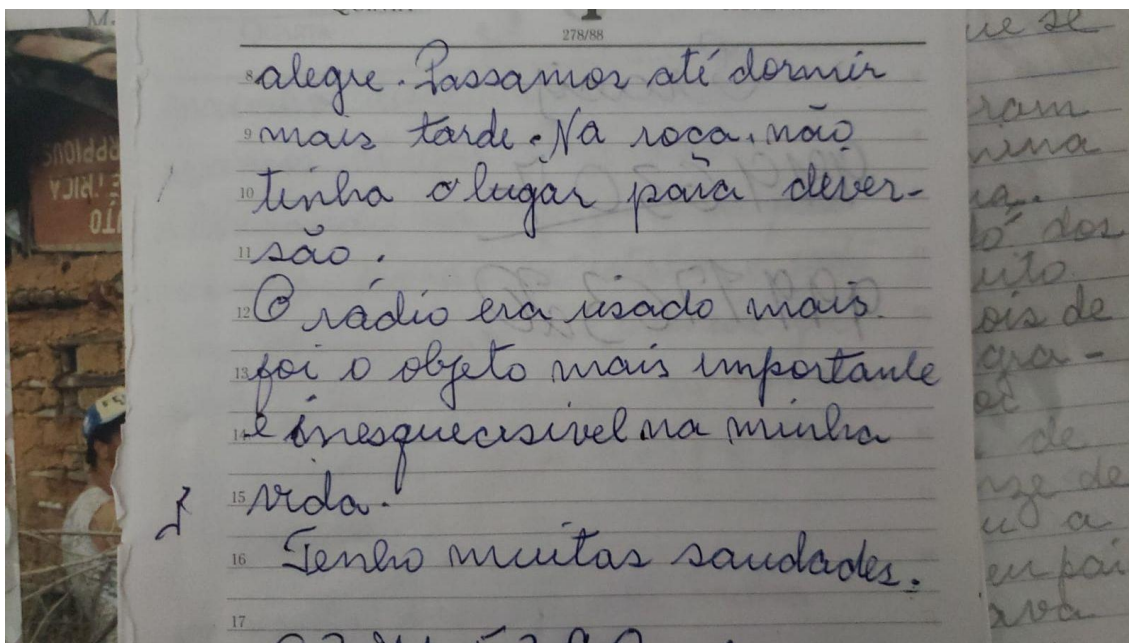 278/88
8 alegre. Passamos até dormir
9 mais tarde. Na roca, não
10 tinha o lugar para diver-
11 são.
12 O rádio era usado mais
13 foi o objeto mais importante
14 e inesquecisivel na minha
15 vida.
16 Tenho muitas saudades.
17
ue se
ram
ó dos
ois de
gra-
de
u a
eu pai